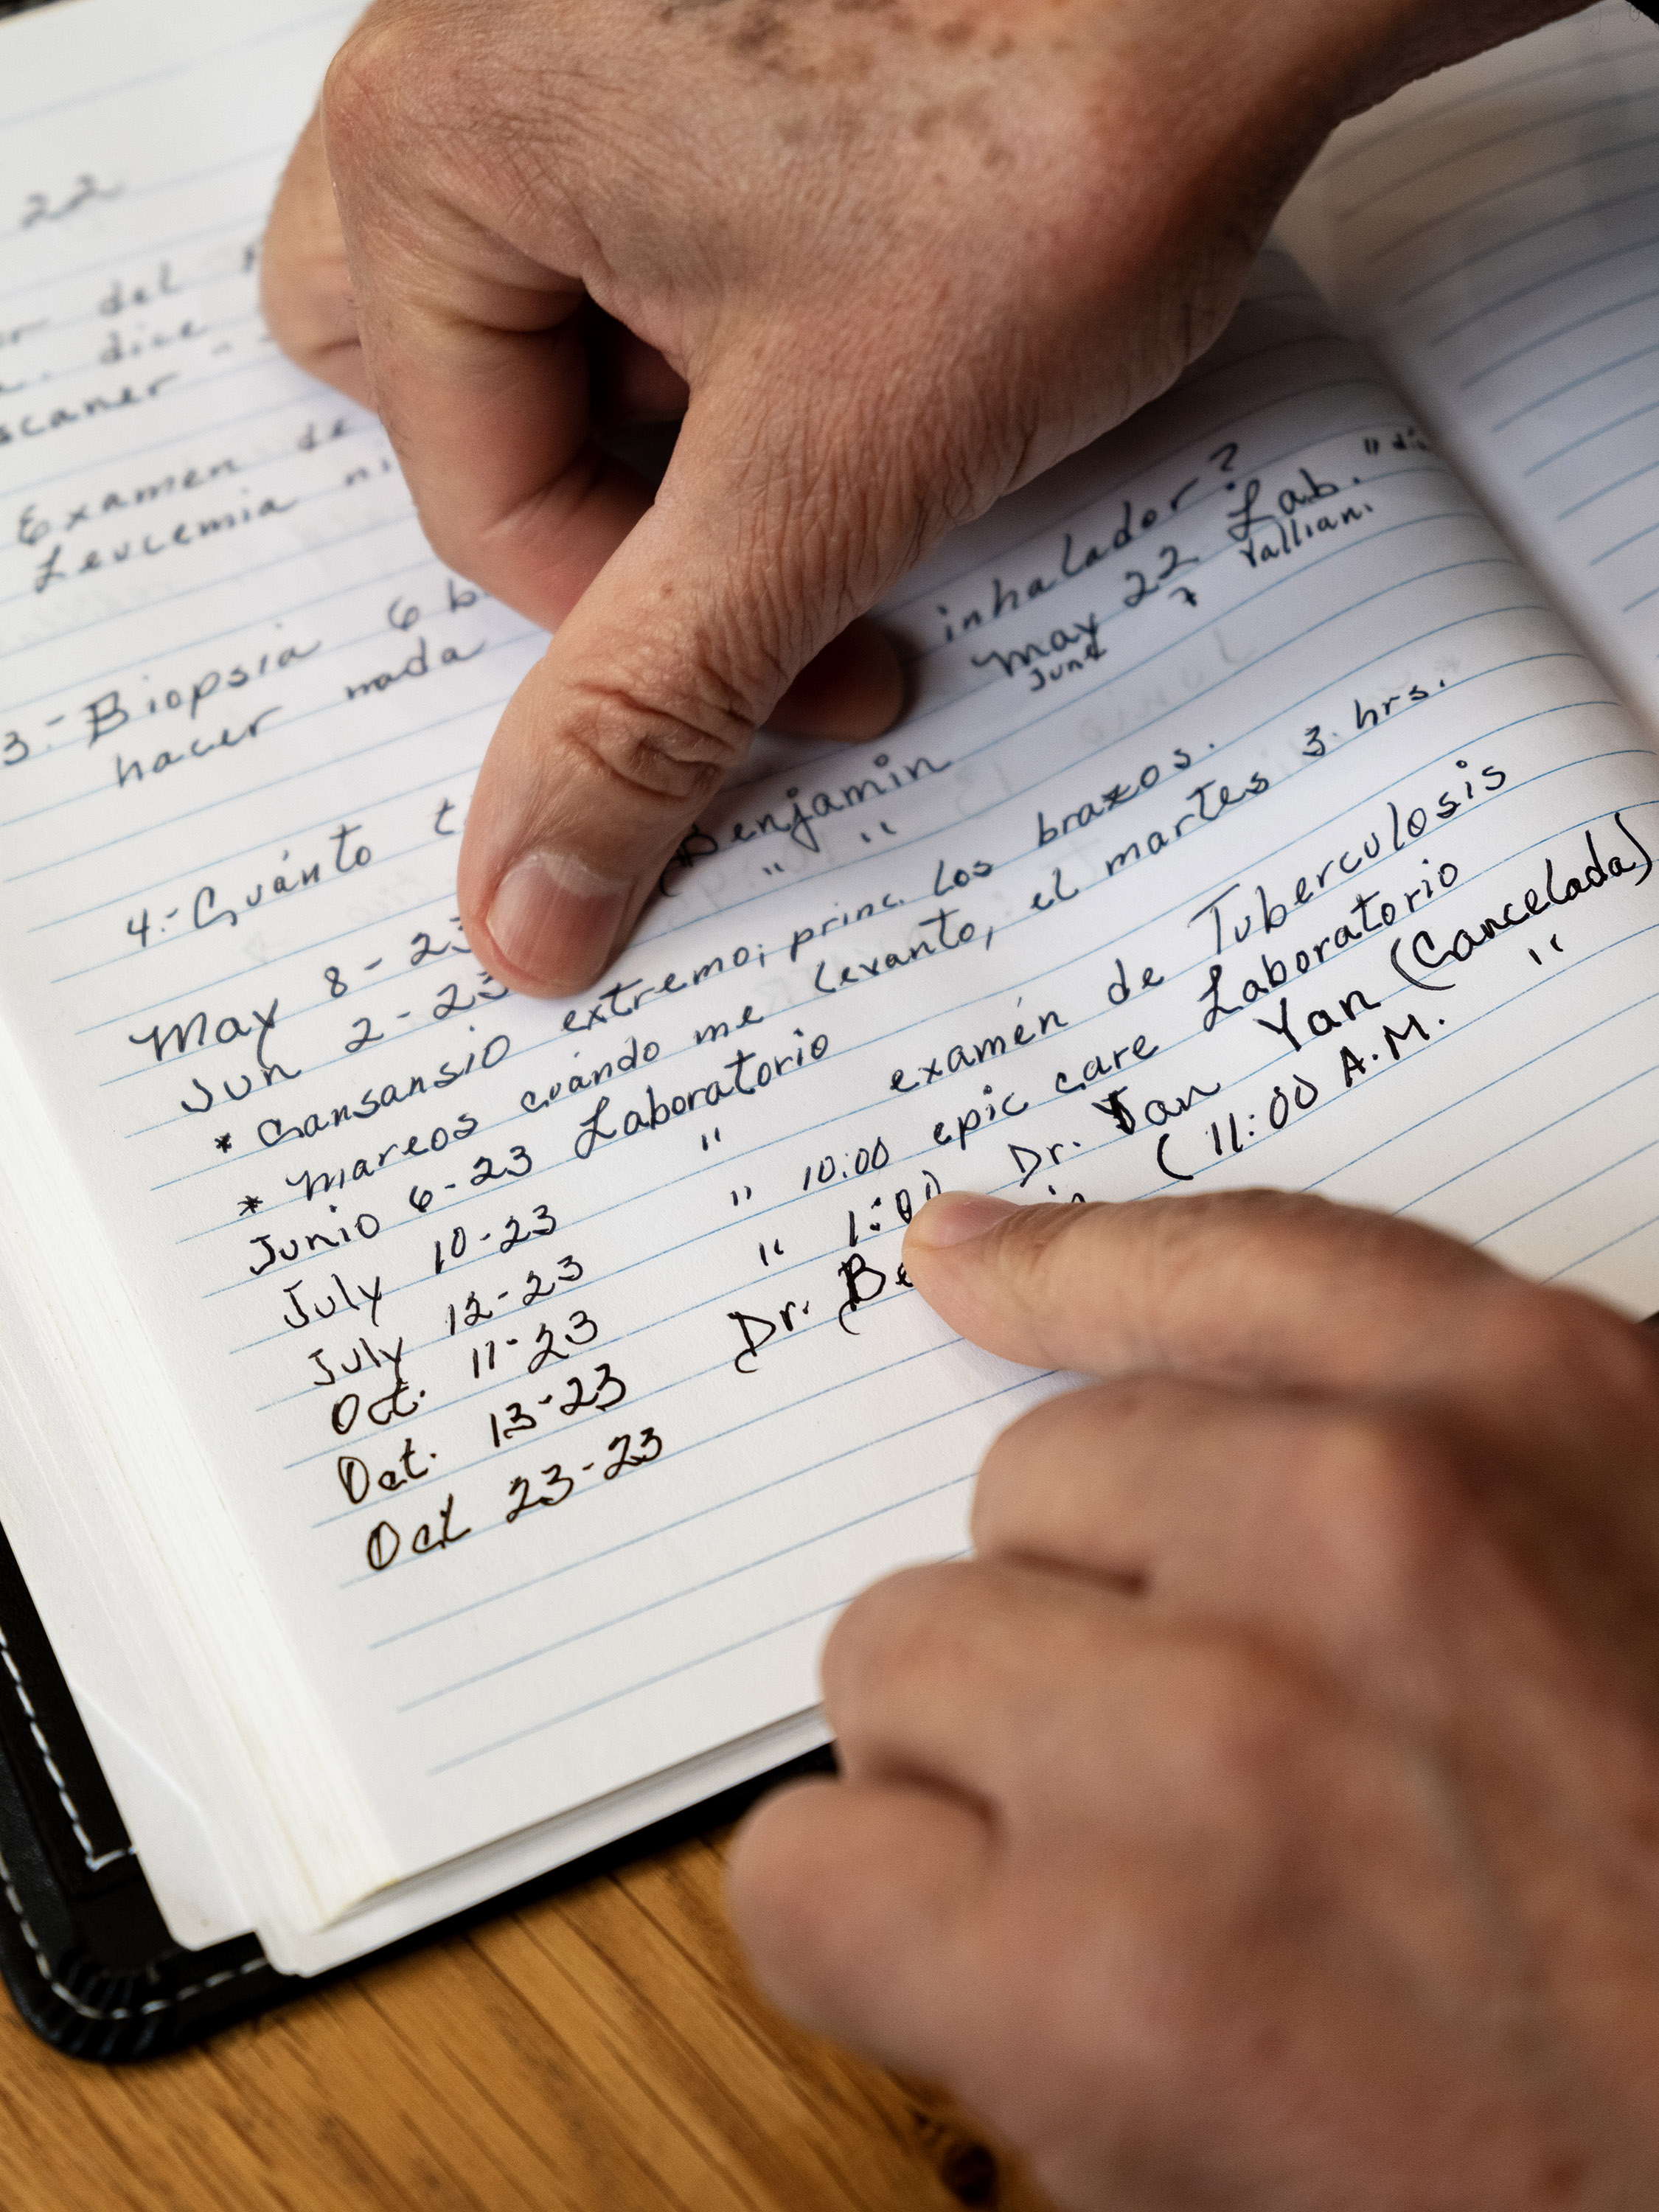 22
del
dice
scaner - -
Examen de
Leucemia ni
3.- Biopsia 6 b
hacer nada
4.- Cuánto t inhalador?
May 22 Lab. "
June 7 Valliani
May 8-23 (Benjamin
Jun 2-23 " "
* Cansansio extremo; princ. los brazos.
* Mareos cuándo me levanto, el martes 3. hrs.
Junio 6-23 Laboratorio
July 10-23 " examén de Tuberculosis
July 12-23 " 10:00 epic care Laboratorio
Oct. 11-23 " 1:00 Dr. Yan Yan (Cancelada)
Oct. 13-23 Dr. Be in (11:00 A.M. "
Oct 23-23